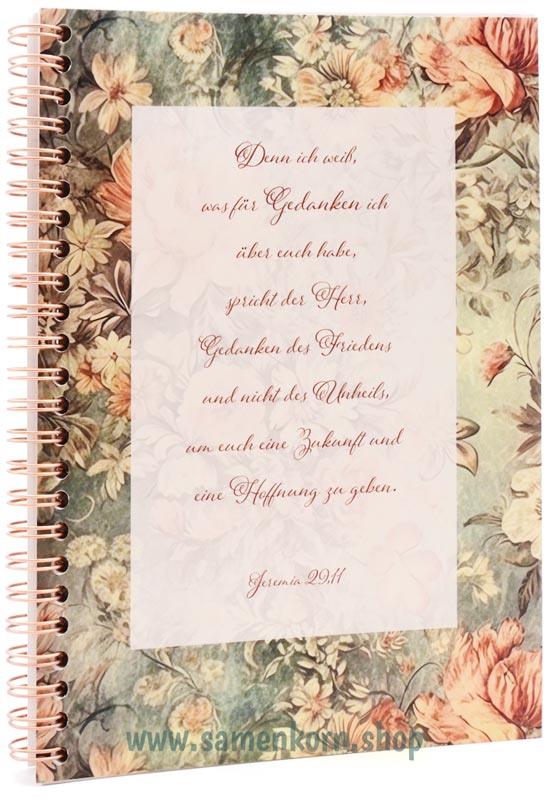 Denn ich weiß,
was für Gedanken ich
über euch habe,
spricht der Herr,
Gedanken des Friedens
und nicht des Unheils,
um euch eine Zukunft und
eine Hoffnung zu geben.
Jeremia 29,11
www.samenkorn.shop